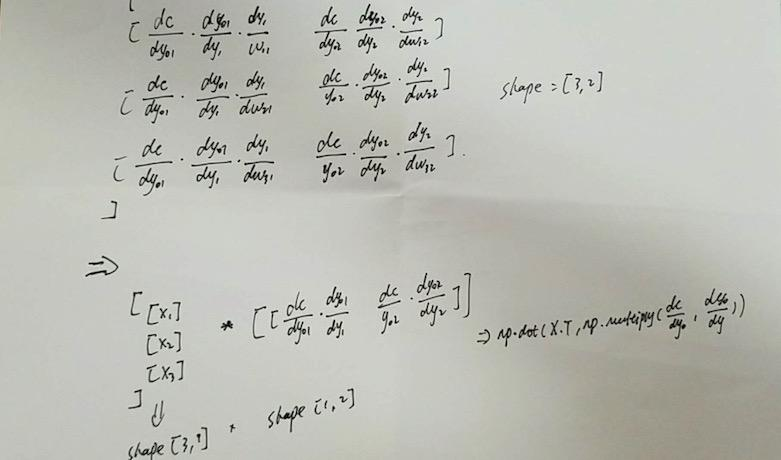 [
[ dc/dy01 · dy01/dy1 · dy1/w11   dc/dy02 · dy02/dy2 · dy2/dw12 ]
[ dc/dy01 · dy01/dy1 · dy1/dw21   dc/y02 · dy02/dy2 · dy2/dw22 ]   shape = [3,2]
[ dc/dy01 · dy01/dy1 · dy1/dw31   dc/y02 · dy02/dy2 · dy2/dw32 ].
]
⇒
[ [x1]   *   [[ dc/dy01 · dy01/dy1   dc/y02 · dy02/dy2 ]]   ⇒ np.dot(X.T, np.multiply(dc/dy0, dy0/dy))
[x2]
[x3]
]
⇓
shape [3,1] * shape [1,2]